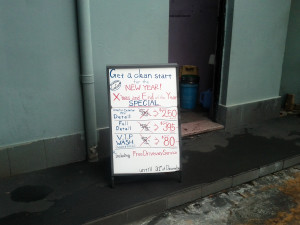 Get a clean start
for the
NEW YEAR!
X'mas and End of the Year
SPECIAL
Detail $250
Full
Detail $395
V.I.P
WASH $80
Including Free Driveway Service
until 31st December